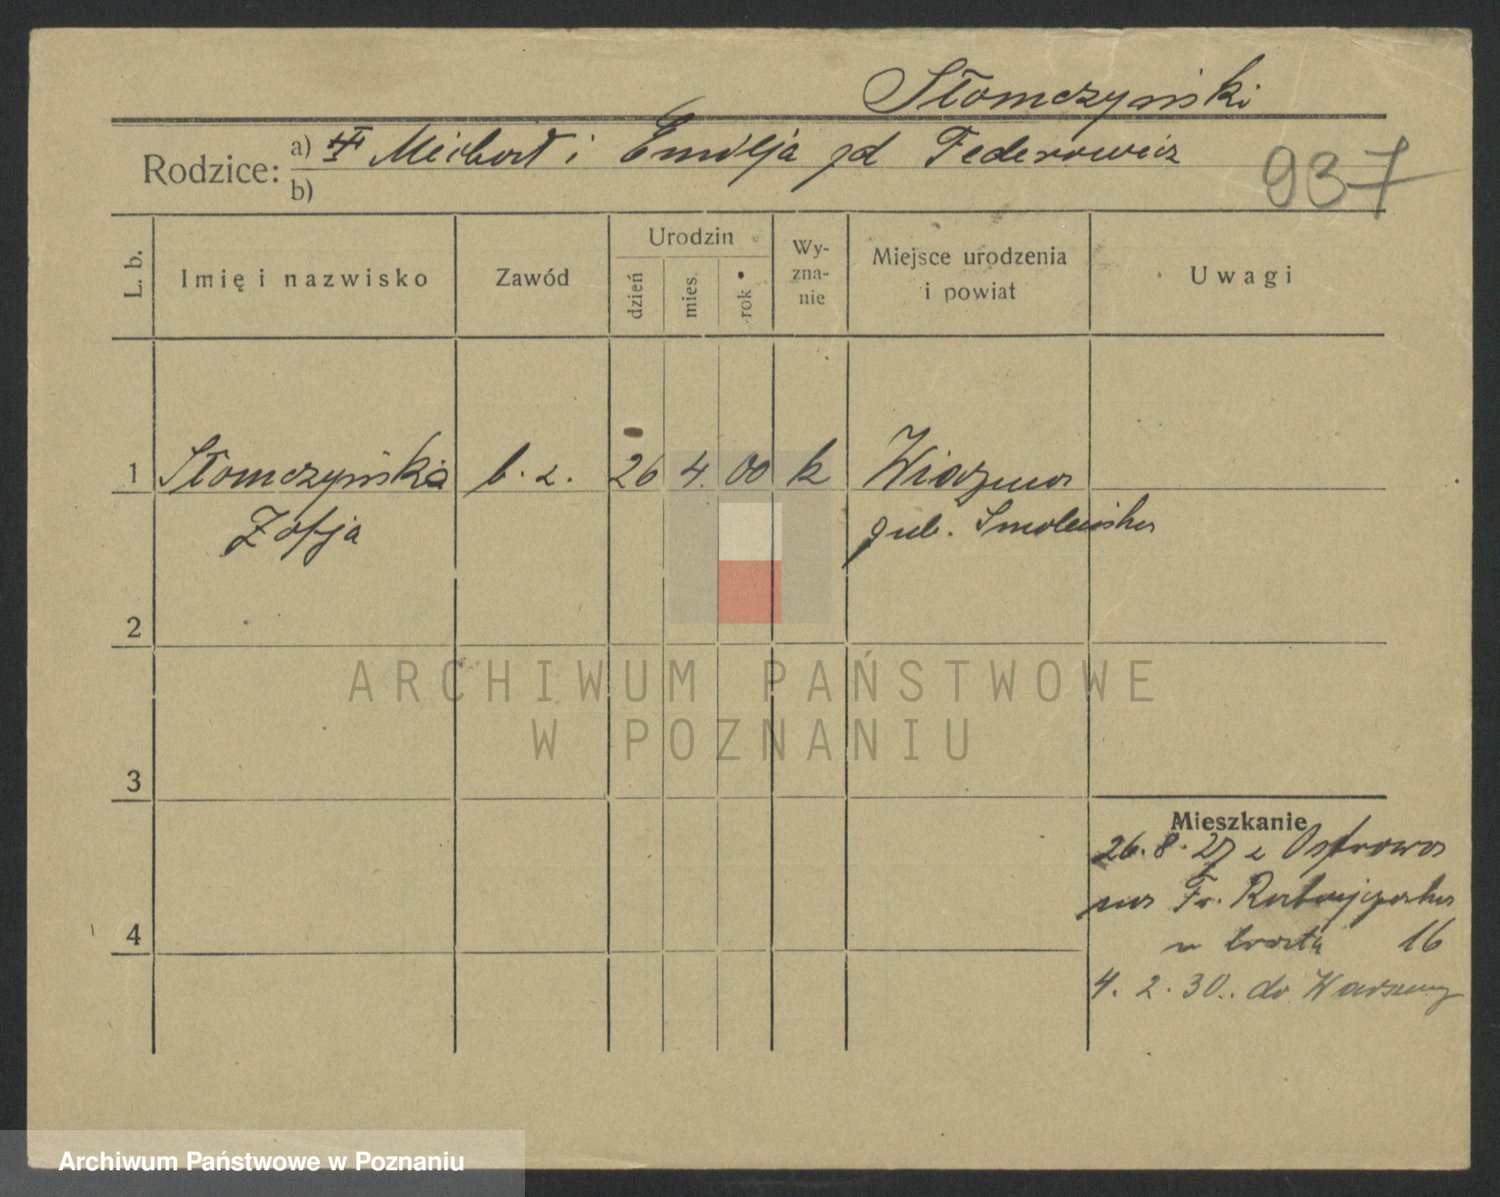 Słomczyński
Rodzice: a) Michał i Emilja zd Federowicz
b)
937
L. b.
Imię i nazwisko
Zawód
Urodzin
dzień
mies.
rok
Wy-
zna-
nie
Miejsce urodzenia
i powiat
Uwagi
1 Słomczyńska b. z. 26 4. 00 k Wiazma
Zofja gub. Smoleńska
2
ARCHIWUM PAŃSTWOWE
W POZNANIU
3
Mieszkanie
26. 8. 27 z Ostrowa
na Fr. Ratajczaka
4
16
4. 2. 30. do Warszawy
Archiwum Państwowe w Poznaniu